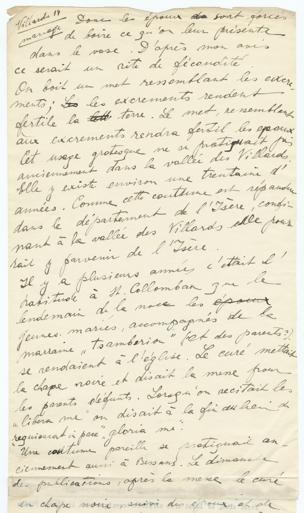 Villards 14
mariage
Donc les époux sont forcés
de boire ce qu'on leur présente
dans le vase. D'après mon avis
ce serait un rite de fécondité
On boit un met ressemblant les excre-
ments; les excrements rendent
fertile la terre. Le met ressemblant
aux excrements rendra fertil les epoux
Cet usage grotesque ne se pratiquait pas
anciennement dans la vallée des Villards,
Elle y existe environ une trentaine d'
années. Comme cette couthume est repandue
dans le département de l'Isère, confi-
nant à la vallée des Villards elle pour
rait y parvenir de l'Isère.
Il y a plusieurs années c'était l'
habitude à St. Collomban que le
lendemain de la noce les
jeunes maries, accompagnés de la
marraine "tsamberion" (et des parents?)
se rendaient à l'eglise. Le curé mettait
la chape noire et disait la messe pour
les parents défunts. Lorsqu'on recitait les
"libera me" on disait à la fin au lieu de
requiescant in pace "gloria me".
Une coutume pareille se pratiquait an-
ciennement aussi à Bessans. Le dimanche
des publications, après la messe le curé
en chape noire suivi des epoux et de